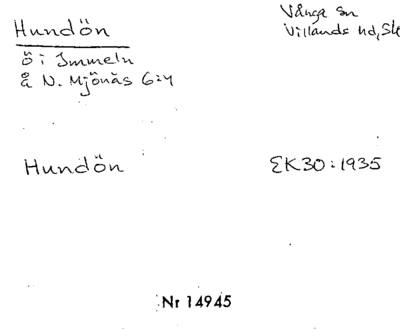 Hundön
Vånga sn
Villands hd, Sk
ö i Immeln
å N. Mjönäs 6:4
Hundön
EK30:1935
Nr 14945